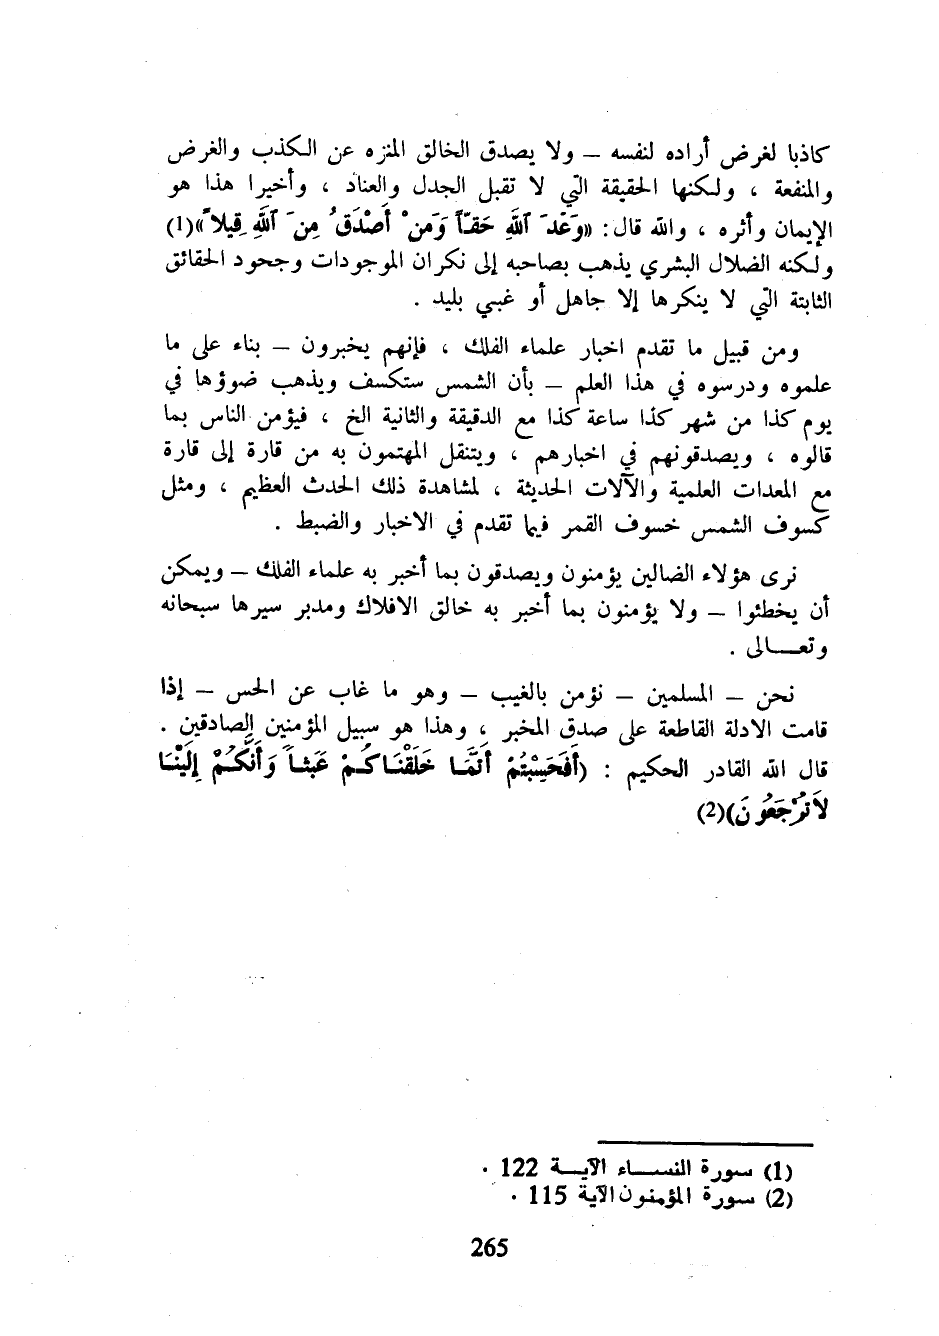 كاذبا لغرض أراده لنفسه – ولا يصدق الخالق المنزه عن الكذب والغرض
والمنفعة ، ولكنها الحقيقة التي لا تقبل الجدل والعناد ، وأخيرا هذا هو
الإيمان وأثره ، والله قال: «وَعْدَ ٱللَّهِ حَقّاً وَمَنْ أَصْدَقُ مِنَ ٱللَّهِ قِيلاً»(1)
ولكنه الضلال البشري يذهب بصاحبه إلى نكران الموجودات وجحود الحقائق
الثابتة التي لا ينكرها إلا جاهل أو غبي بليد .
ومن قبيل ما تقدم اخبار علماء الفلك ، فإنهم يخبرون – بناء على ما
علموه ودرسوه في هذا العلم – بأن الشمس ستكسف ويذهب ضوؤها في
يوم كذا من شهر كذا ساعة كذا مع الدقيقة والثانية الخ ، فيؤمن الناس بما
قالوه ، ويصدقونهم في اخبارهم ، ويتنقل المهتمون به من قارة إلى قارة
مع المعدات العلمية والآلات الحديثة ، لمشاهدة ذلك الحدث العظيم ، ومثل
كسوف الشمس خسوف القمر فيما تقدم في الاخبار والضبط .
نرى هؤلاء الضالين يؤمنون ويصدقون بما أخبر به علماء الفلك – ويمكن
أن يخطئوا – ولا يؤمنون بما أخبر به خالق الافلاك ومدبر سيرها سبحانه
وتعــــالى .
نحن – المسلمين – نؤمن بالغيب – وهو ما غاب عن الحس – إذا
قامت الادلة القاطعة على صدق المخبر ، وهذا هو سبيل المؤمنين الصادقين .
قال الله القادر الحكيم : (أَفَحَسِبْتُمْ أَنَّمَـا خَلَقْنَـاكُـمْ عَبَثـاً وَأَنَّكُـمْ إِلَيْنَـا
لاَ تُرْجَعُونَ)(2)
(1) سورة النســـاء الآيــة 122 .
(2) سورة المؤمنون الآية 115 .
265